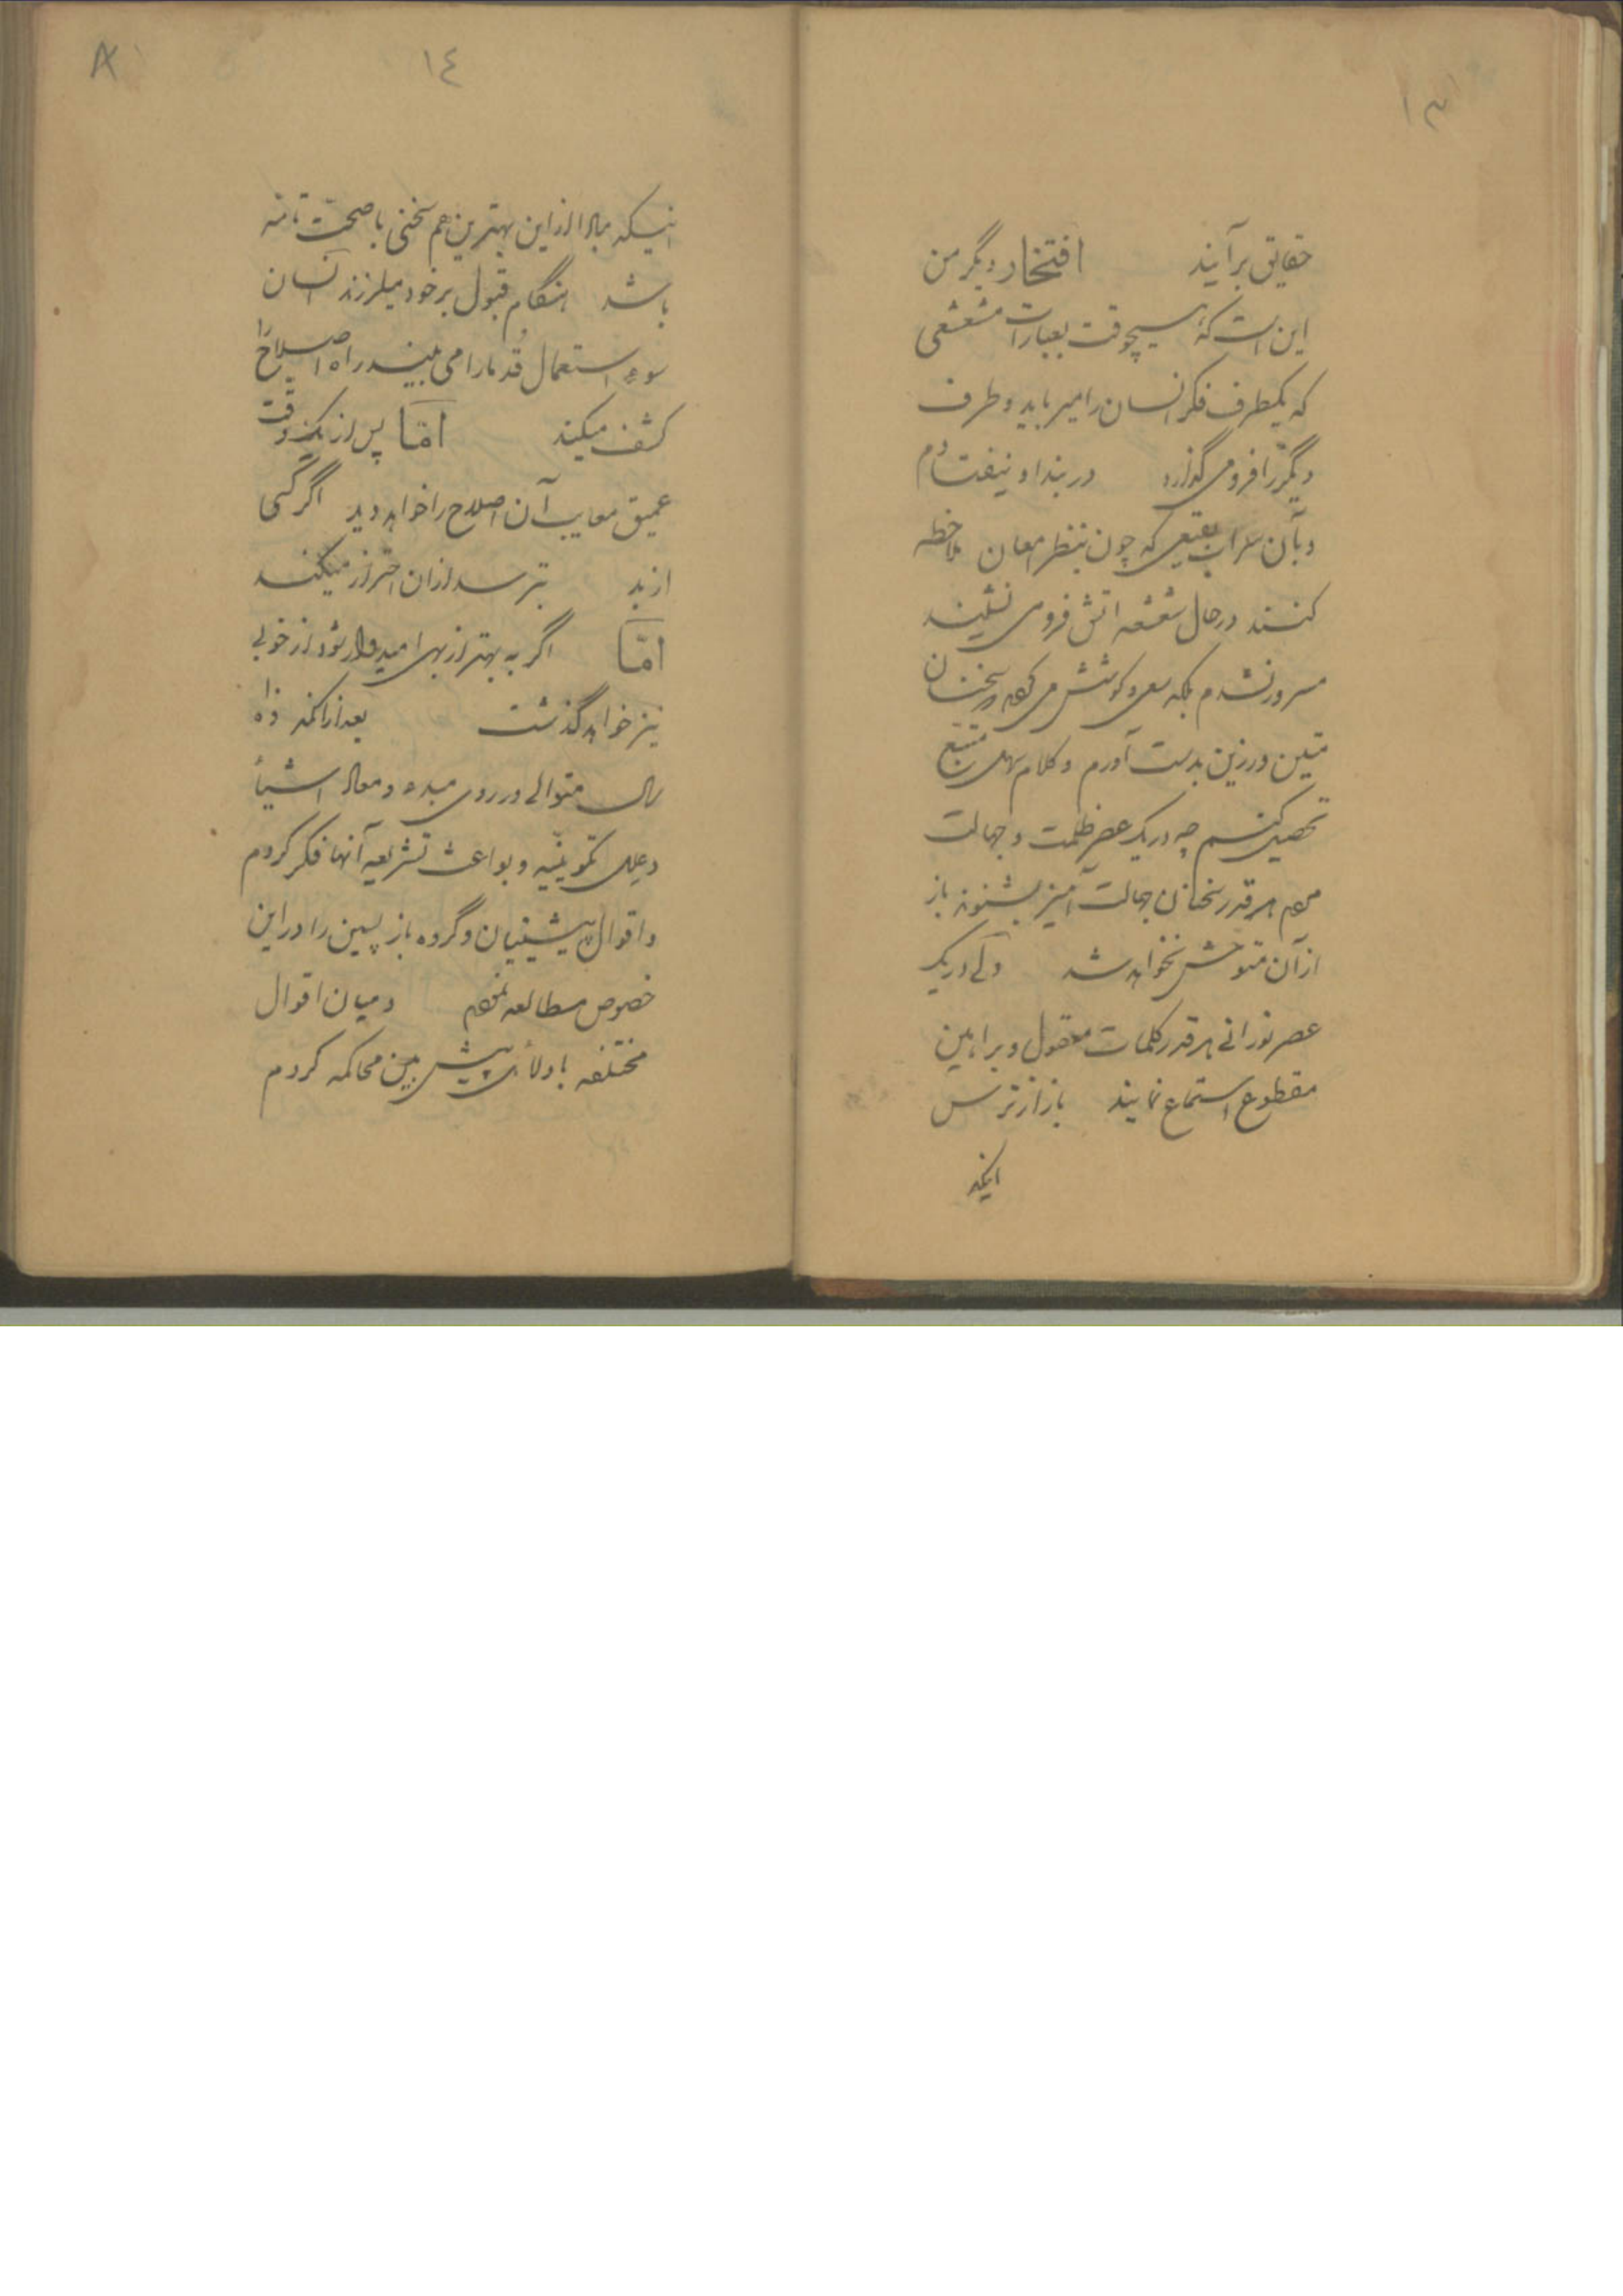 ۱۳
حقایق برآیند افتخار دیگر من
این است که هیچوقت بعبارات مشعشعی
که یکطرف فکر انسان را میرباید و طرف
دیگر را فرو می گذارد در بند او نیفتادم
و بآن سراب بقیعی که چون بنظر امعان ملاحظه
کنند در حال شعشعه اتش فرو می نشیند
مسرور نشدم بلکه سعی و کوشش می کردم سخنان
متین و رزین بدست آورم و کلام سهل ممتنع
تحصیل کنم چه در یک عصر ظلمت و جهالت
مردم هرقدر سخنان جهالت آمیز بشنوند باز
از آن متوحش نخواهد شد ولی در یک
عصر نورانی هرقدر کلمات معقول و براهین
مقطوع استماع نمایند باز از ترس
اینکه
۱٤
اینکه مبادا از این بهترین هم سخنی با صحت تامه
باشد هنگام قبول بر خود میلرزند انسان
سوء استعمال قدما را می بیند راه اصلاح را
کشف میکند امّا پس از یک دقت
عمیق معایب آن اصلاح را خواهد دید اگر کسی
از بد بترسد از ان احتراز میکند
امّا اگر به بهتر از بهی امیدوار شود از خوبی
نیز خواهد گذشت بعد از آنکه ده
سال متوالی در روی مبدء و معاد اشیأ
و علل تکوینیّه و بواعث تشریعیه آنها فکر کردم
و اقوال پیشینیان و گروه باز پسین را در این
خصوص مطالعه نمودم و میان اقوال
مختلفه با دلائل پیش بین محاکمه کردم